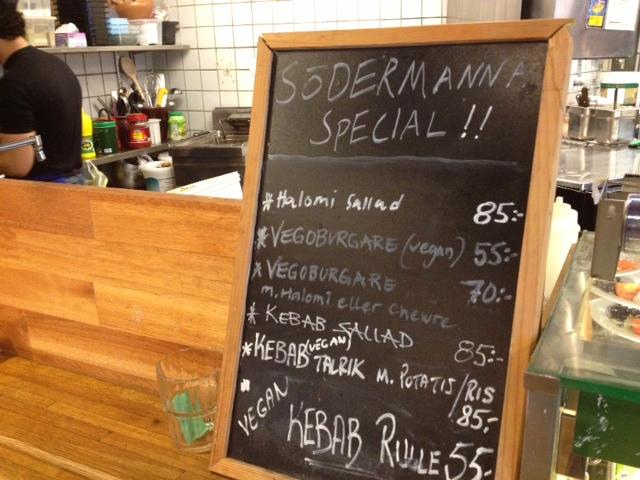 SÖDERMANNA
SPECIAL!!
* Halomi Sallad 85:-
* VEGOBURGARE (vegan) 55:-
* VEGOBURGARE 70:-
m. Halomi eller Chevre
* KEBAB SALLAD 85:-
* KEBAB (VEGAN) TALRIK M. POTATIS/RIS 85:-
* VEGAN KEBAB RULLE 55:-